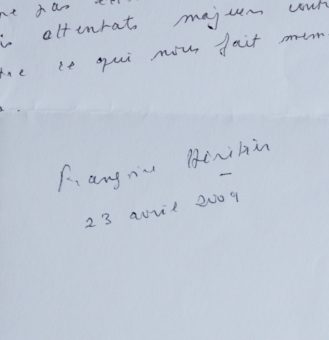 ne pas
attentats majeurs cont
ce qui nous fait mem
Françoise Héritier
23 avril 2009